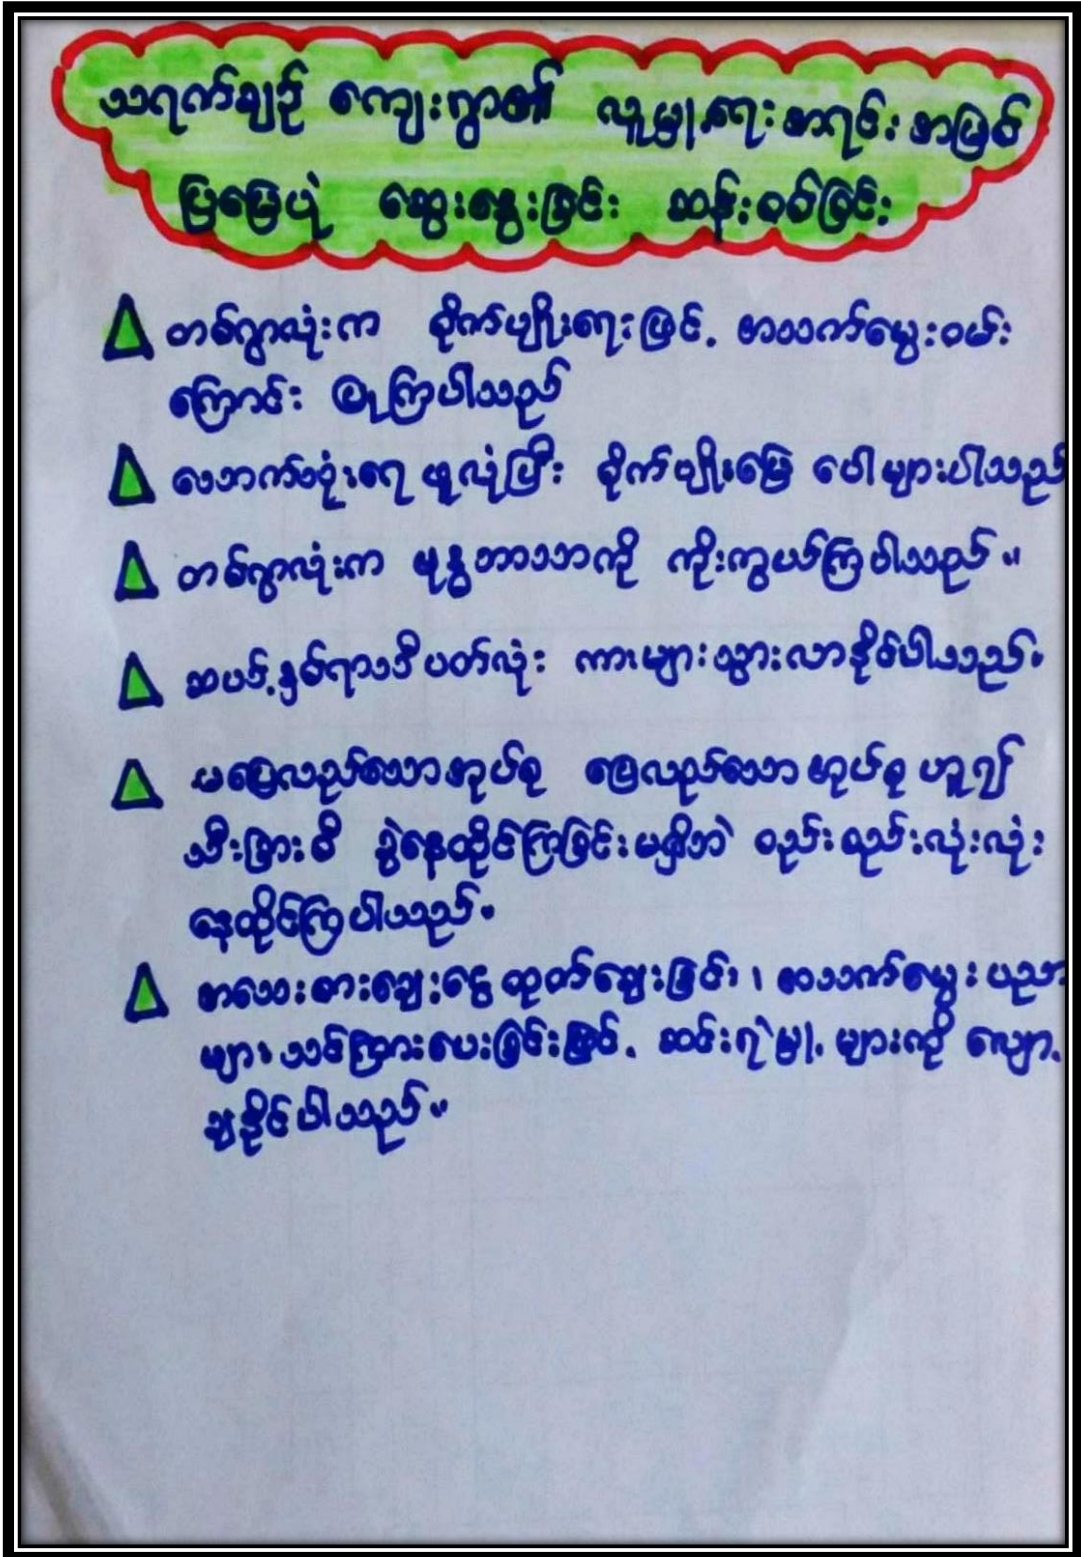 သရက်ချဉ် ကျေးရွာ၏ လူမှုရေး အရင်း အမြစ်
ပြမြေပုံ ဆွေးနွေးခြင်း ဆန်းစစ်ခြင်း
တစ်ရွာလုံးက စိုက်ပျိုးရေးဖြင့် အသက်မွေးဝမ်း
ကြောင်း ပြုကြပါသည်
လေဘက်စပုံးရေ ဖူလုံပြီး စိုက်ပျိုးမြေ ပေါများပါသည်
တစ်ရွာလုံးက ဗုဒ္ဓဘာသာကို ကိုးကွယ်ကြပါသည်။
ဆယ့်နှစ်ရာသီပတ်လုံး ကားများသွားလာနိုင်ပါသည်။
မပြေလည်သောအုပ်စု ပြေလည်သောအုပ်စု ဟူ၍
သီးခြားစီ ခွဲနေထိုင်ကြခြင်းမရှိဘဲ စည်းစည်းလုံးလုံး
နေထိုင်ကြပါသည်။
အသေးစားချေးငွေ ထုတ်ချေးခြင်း၊ အသက်မွေး ပညာ
များ သင်ကြားပေးခြင်းဖြင့် ဆင်းရဲမှု များကို လျော့
ချနိုင်ပါသည်။